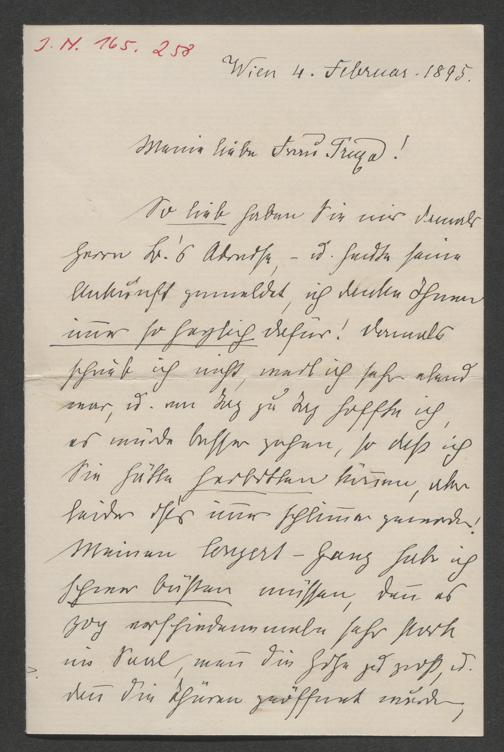 J. N. 165. 258
Wien 4. Februar. 1895.
Meine liebe Frau Truxa!
So lieb haben Sie mir damals
Herrn Br.'s Adresse, – u. heute seine
Ankunft gemeldet, ich danke Ihnen
im̅er so herzlich dafür! Damals
schrieb ich nicht, weil ich sehr elend
war, u. von Tag zu Tag hoffte ich,
es würde besser gehen, so daß ich
Sie hätte herbitten kön̅en, aber
leider ist's im̅er schlim̅er geworden!
Meinen Conzert-Gang habe ich
schwer büßen müssen, den̅ es
zog verschiedenemale sehr stark
im Saal, wen̅ die Hitze zu groß, u.
dan̅ die Thüren geöffnet wurden,